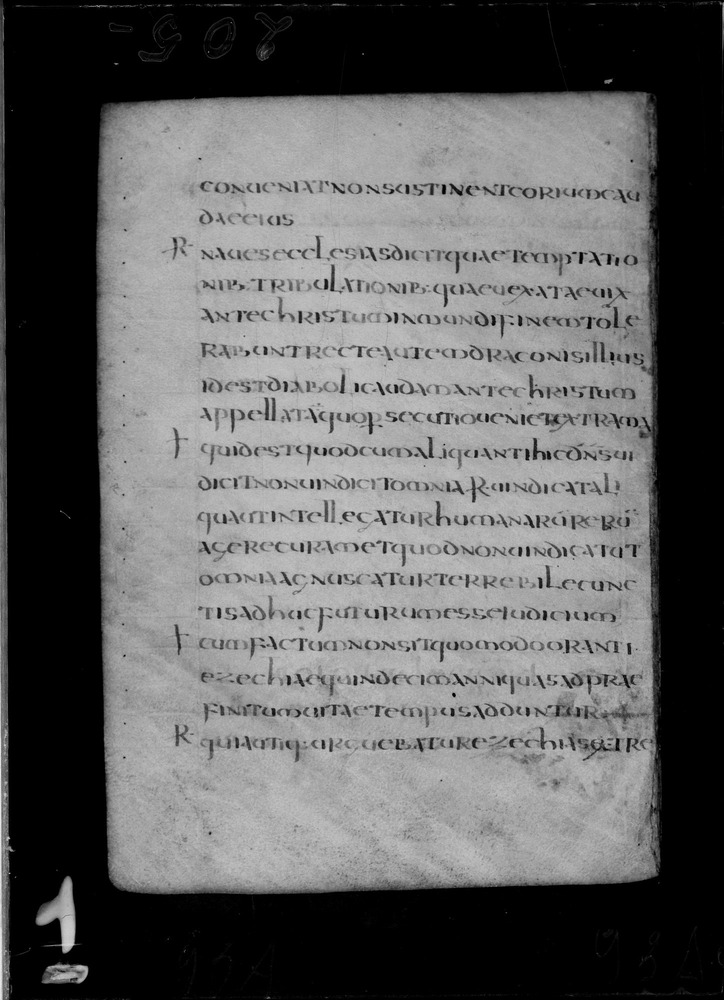 205-
conueniat non sustinent corium cau
dae eius
R naues ecclesias dicit quae temptatio
nib· tribulationib· quae uexatae uix
antechristum in mundi finem tole
rabunt recte autem draconis illius
id est diaboli caudam antechristum
appellat a quo persecutio ueniet extrema
quid est quod cum aliquanti hic consui
dicit non uindicit omnia R uindicat ali
qua ut intellegatur humanarū rerū
agere curam et quod non uindicat ut
omnia agnuscatur terrebile cunc
tis adhuc futurum esse iudicium
cum factum non sit quomodo oranti
ezechiae quindecim anni quas ad prae
finitum uitae tempus adduntur
R quia utiq· arguebatur ezechias
1